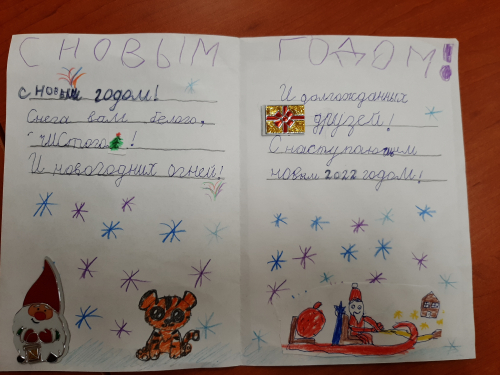 С НОВЫМ ГОДОМ!
С НОВЫМ ГОДОМ!
Снега вам белого,
чистого!
И новогодних огней!
И долгожданных
друзей!
С наступающим
новым 2022 годом!